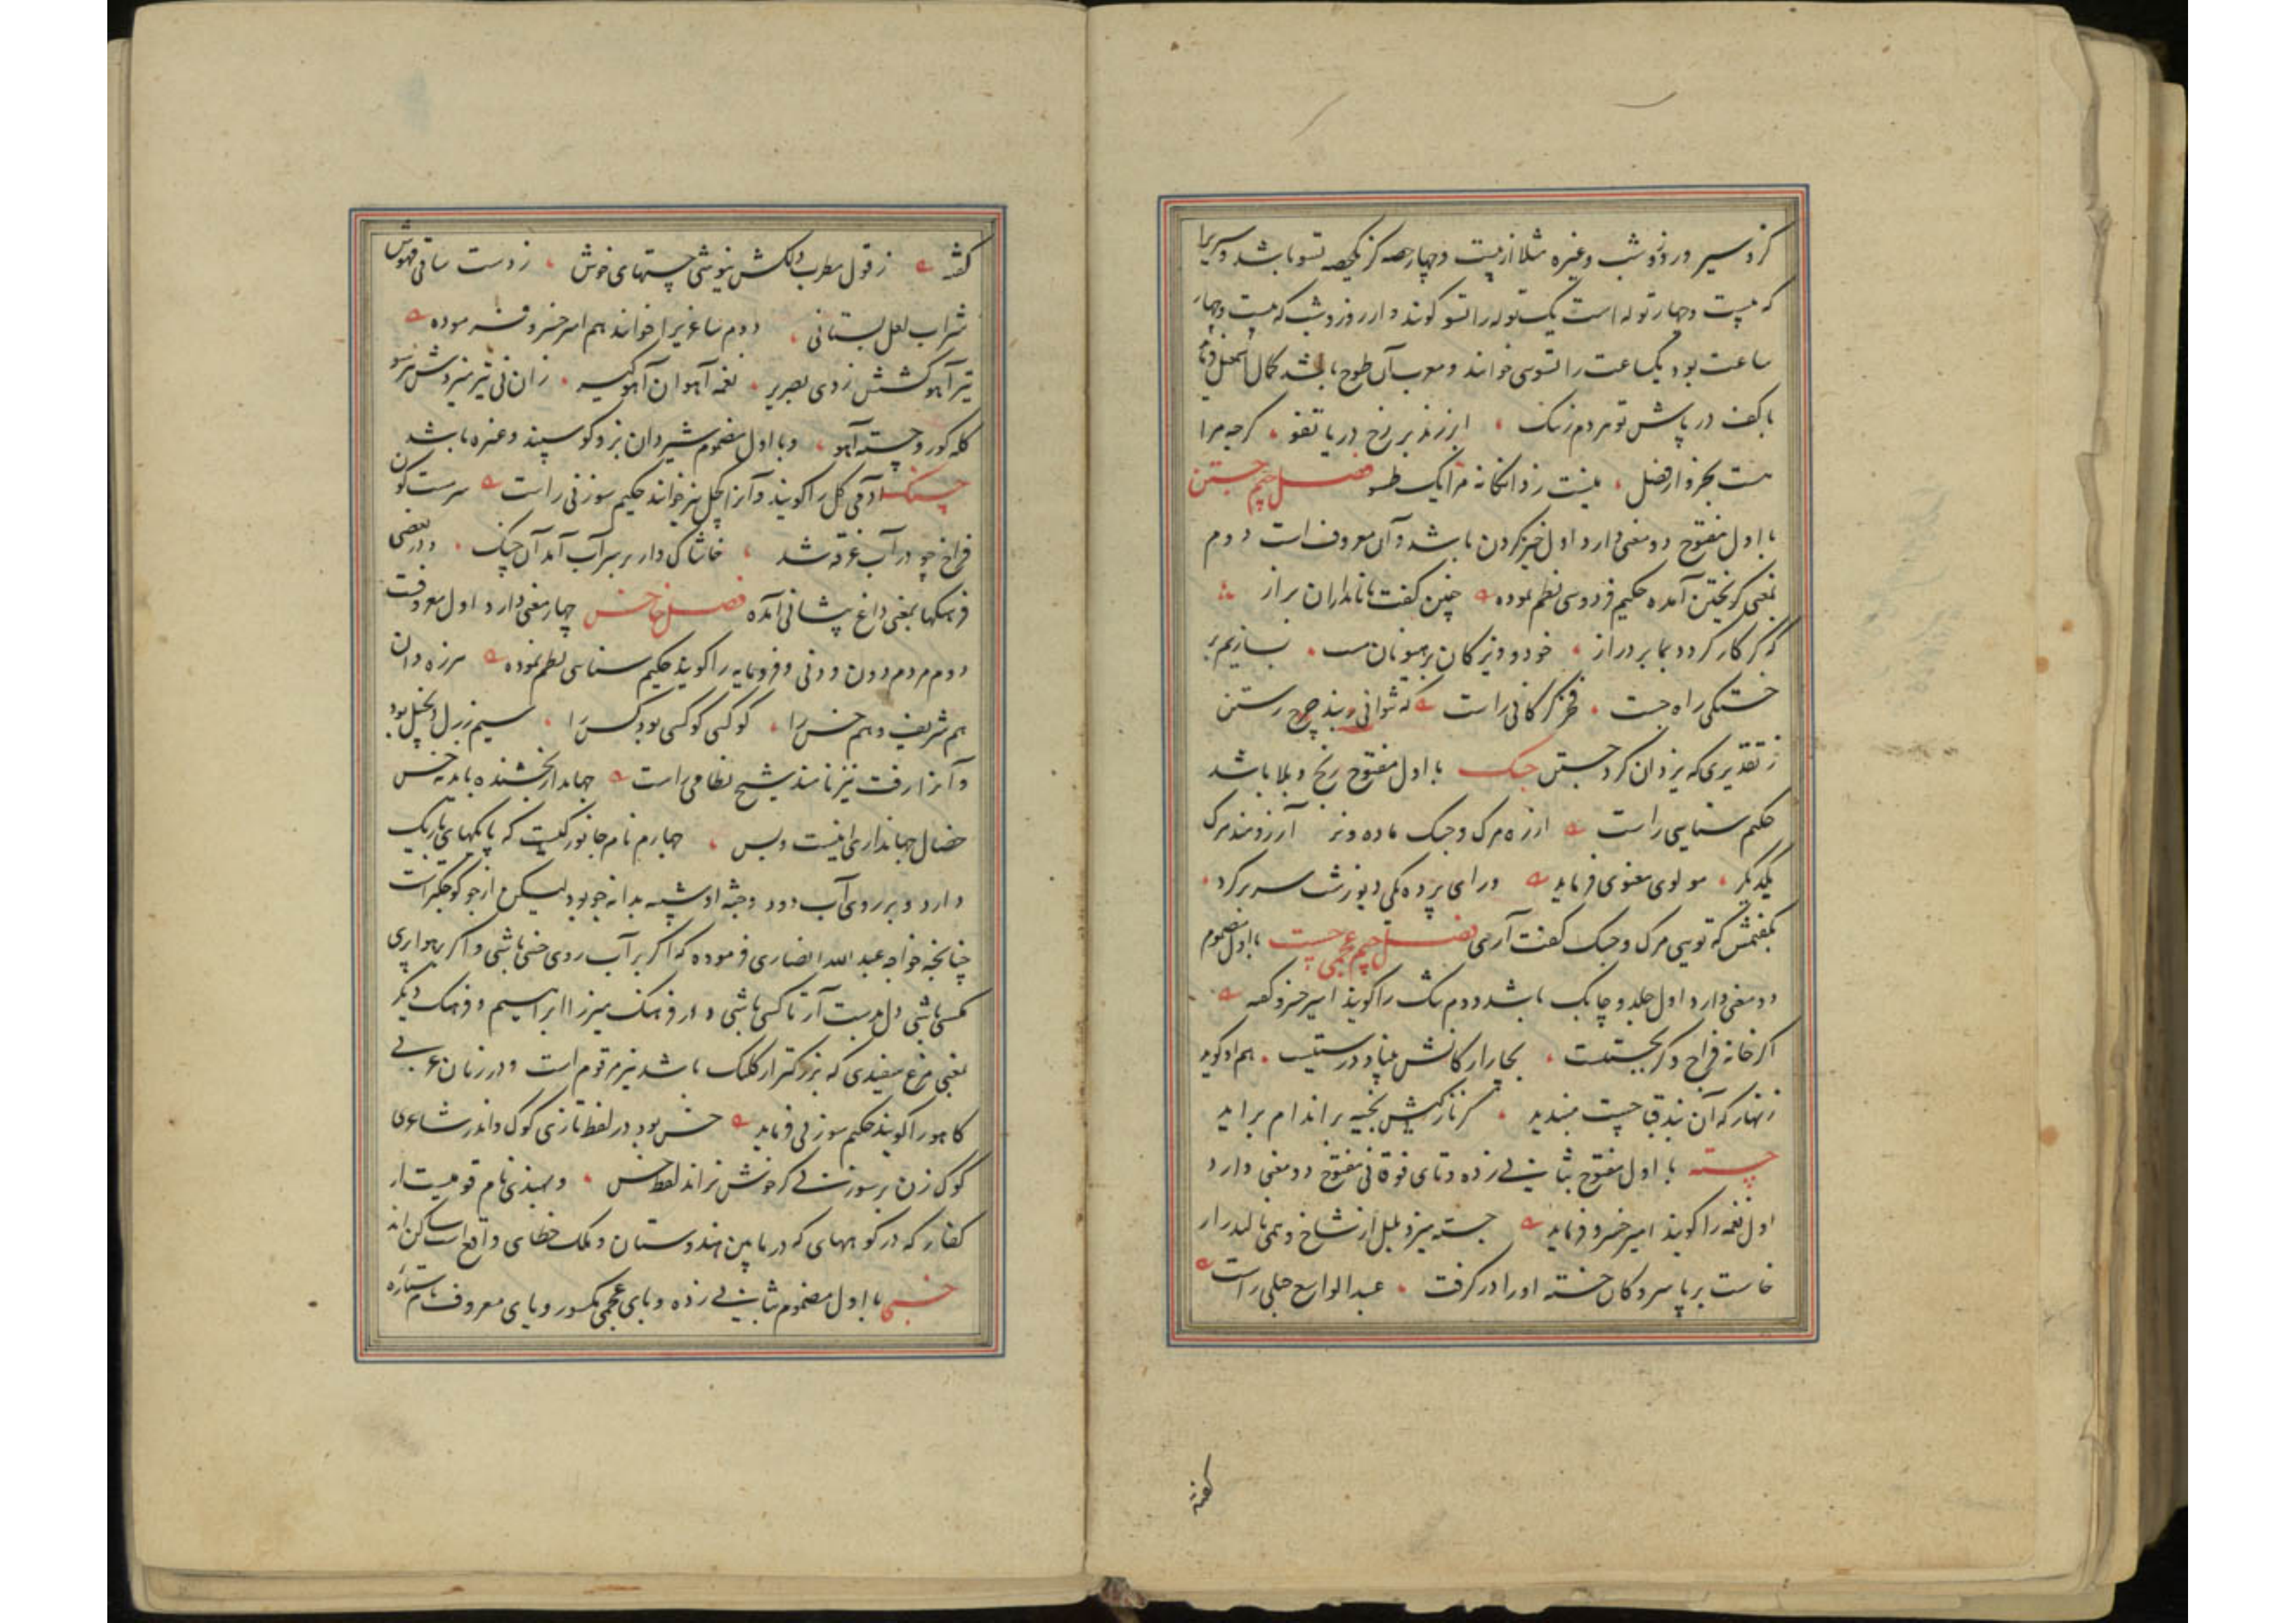 گز و سیر و روز و شب و غیره مثلا از بیست و چهار حصه گز یکحصه تسو باشد و سیر را
که بیست و چهار توله است یک توله را تسو گویند و از روز و شب که بیست و چهار
ساعت بود یکساعت را تسو می خوانند و معرب آن طسوج باشد کمال اسمعیل
با کف در پاش تو مردم زنک ابر زند بر رخ دریا تفو گرچه مرا
هست بخروار فضل نیست ز دانگانه مرا یک طسو فصل جیم جستن
با اول مفتوح دو معنی دارد اول خیز کردن باشد و آن معروف است دوم
بمعنی گریختن آمده حکیم فردوسی نظم نموده چنین گفت با نامداران براز
که گر کار گردد بما بر دراز خود و ویژگان بر هیونان مست بسازیم بر
خستگی راه جست فخر گرگانی راست که نتوانی ز بند چرخ رستن
ز تقدیری که یزدان کرد جستن جسک با اول مفتوح رنج و بلا باشد
حکیم سنایی راست از ره مرک و جسک ماده و نر آرزومند مرک
یکدیگر مولوی معنوی فرماید ورای پرده یکی دیو زشت سر بر کرد
بگفتمش که تویی مرک و جسک گفت آری فصل جیم عجمی چست با اول مضموم
دو معنی دارد اول جلد و چابک باشد دوم تنگ را گویند امیر خسرو گفته
اگر خانه فراخ و گر چستست بجا را رکانش بنیاد درستست هم او گوید
زنهار که آن بند قبا چست مبندید کز نازکیش بخیه بر اندام براید
چسته با اول مفتوح بثانی زده و تای فوقانی مفتوح دو معنی دارد
اول نغمه را گویند امیر خسرو فرماید چسته میزد بلبل از شاخ و همی نالید زار
خاست بر پا سرو کان چسته او را در گرفت عبدالواسع جبلی راست
گفته
گفته ز قول مطرب دلکش نیوشی چستهای خوش ز دست ساقی مهوش
شراب لعل بستانی دوم ساغری را خوانند هم امیر خسرو فرموده
تیر آهو کشش زدی بصریر نغمه آهوان آهو گیر زان نی تیر میزدش هر سو
گله گور و چسته آهو و با اول مضموم شیردان بز و گوسپند و غیره باشد
چسنک آدمی کل را گویند و آنرا کچل نیز خوانند حکیم سوزنی راست سرمست کون
فراخ چو در آب غرقه شد خاشاک وار بر سر آب آمد آن چسنک و در بعضی
فرهنگها بمعنی داغ پیشانی آمده فصل خا خس چهار معنی دارد اول معروفست
دوم مردم دون و دنی و فرومایه را گویند حکیم سنایی نظم نموده هرزه دان
هم شریف و هم خس را کو کسی کو کسی بود کس را سیم زر دل و بخیل بود
و آنرا رفت نیز نامند شیخ نظامی راست جهاندار بخشنده باید نه خس
خصال جهانداری اینست و بس چهارم نام جانورکیست که پایکهای باریک
دارد و بر روی آب دود و جثه او شبیه بدانه جو بود لیکن از جو کوچکتر است
چنانچه خواجه عبد الله انصاری فرموده که اگر بر آب روی خسی باشی و اگر بهوا پری
مگسی باشی دل بدست آر تا کسی باشی و در فرهنک میرزا ابراهیم و فرهنک دیگر
بمعنی مرغ سفیدی که بزرگتر از کلنک باشد نیز مرقوم است و در زبان عربی
کاهو را گویند حکیم سوزنی فرماید خس بود در لفظ تازی کوک و اندر شاعری
کوک زن بر سوزنی گر خوش نراند لفظ خس و بهندی نام قومیست از
کفار که در کوههای که در ما بین هندوستان و ملک خطای واقع است ساکن اند
خسپی با اول مضموم بثانی زده و بای عجمی مکسور و یای معروف نام ستاره